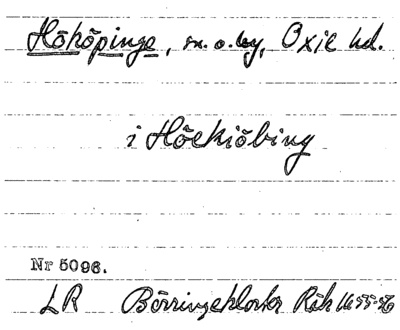 Hököpinge, sn. o. by, Oxie hd.
i Höekiöbing
Nr 5096.
LR Börringekloster Räk 1655-56